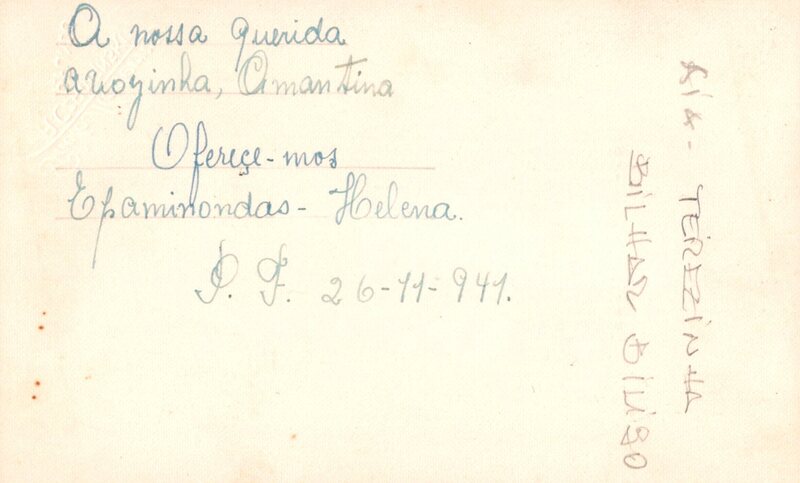 A nossa querida
avozinha, Amantina
Ofereçe-mos
Epaminondas - Helena.
P. F. 26-11-941.
TEREZINHA
BILHAR